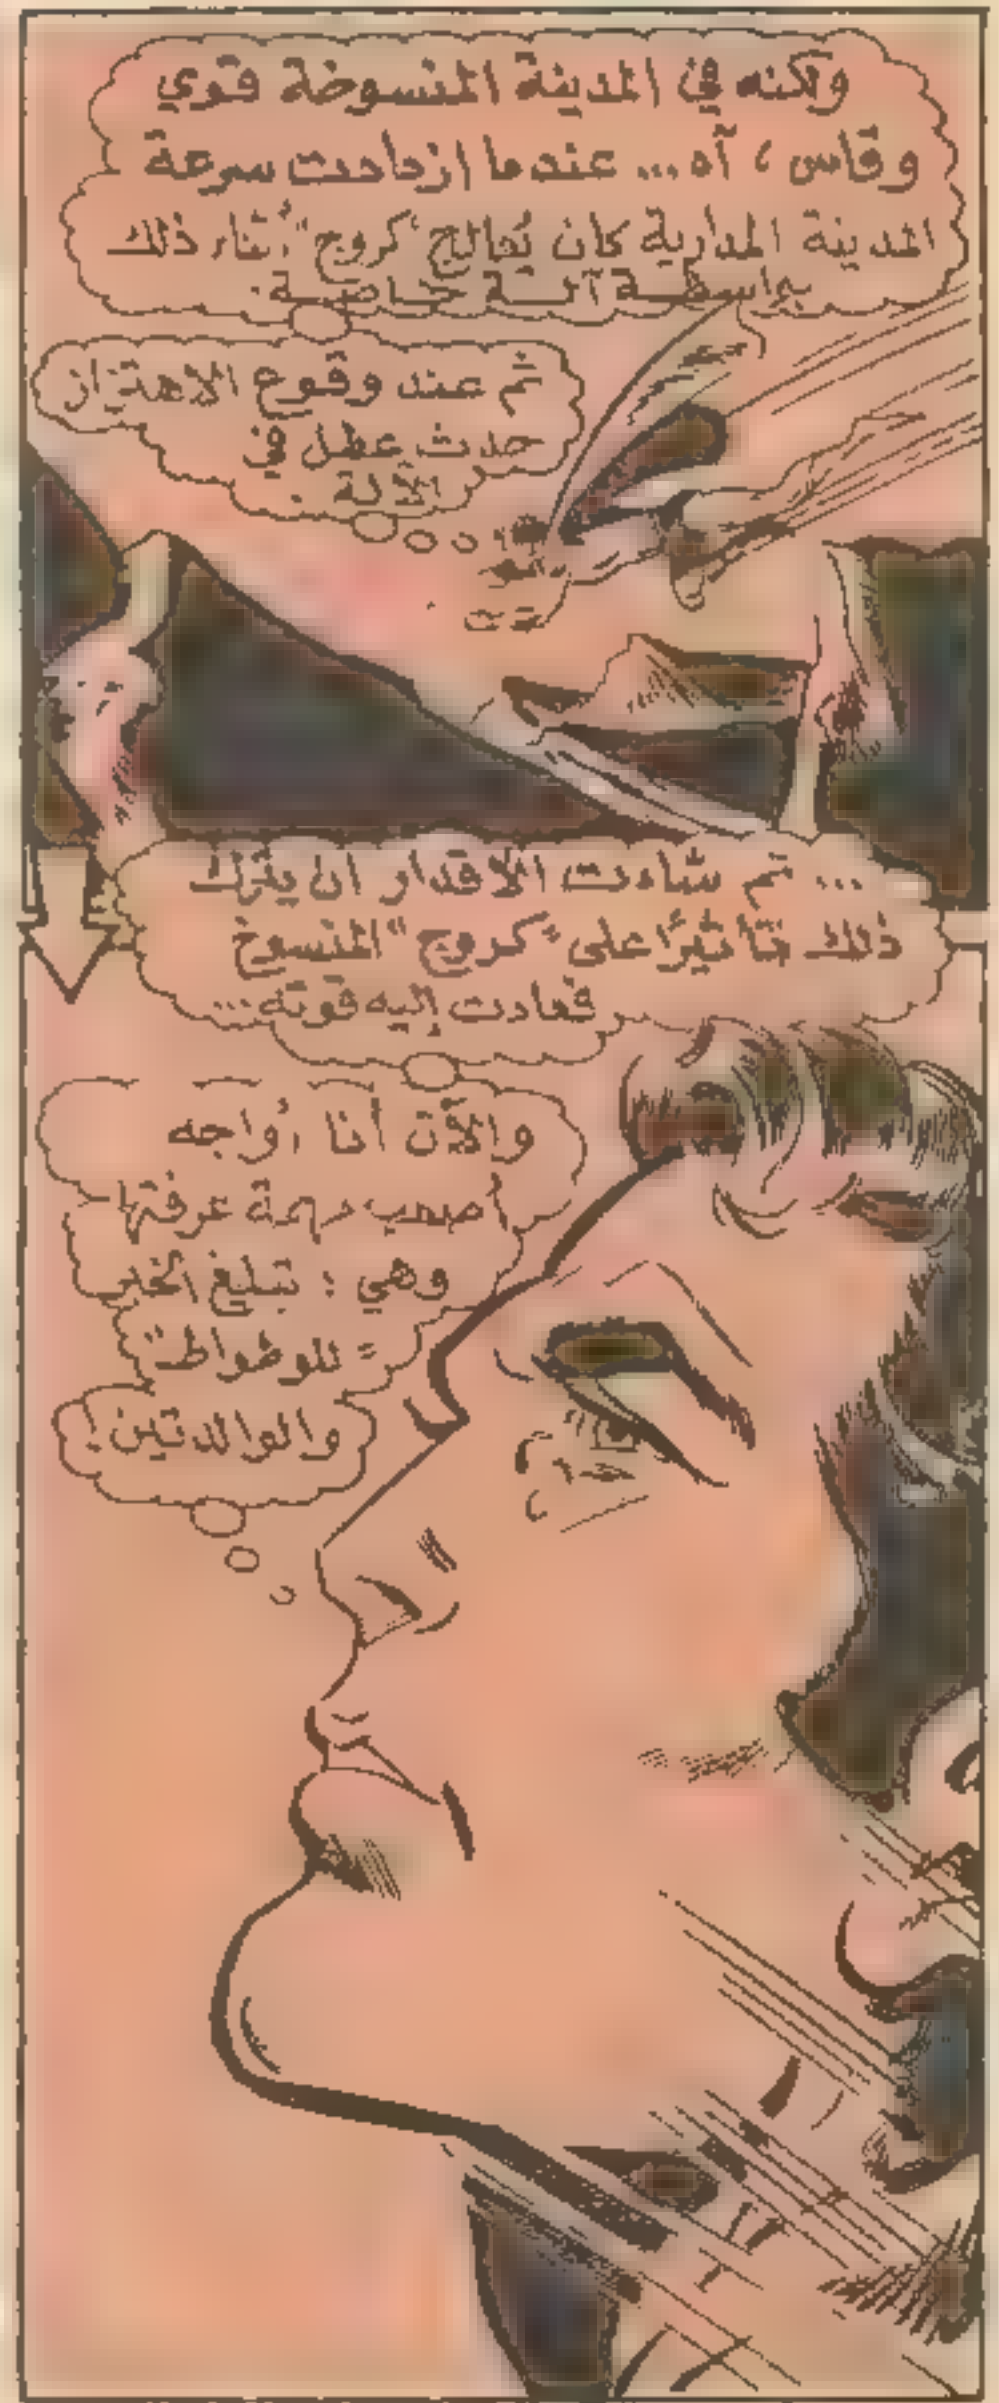 ولكنه في المدينة المنسوخة قوي
وقاس ، آه ... عندما ازدادت سرعة
المدينة المدارية كان يُعالج "كروج" أثناء ذلك
بواسطة آلة خاصة .
ثم عند وقوع الاهتزاز
حدث عطل في
الآلة .
... ثم شاءت الأقدار ان يترك
ذلك تأثيرًا على "كروج" المنسوخ
فعادت إليه قوته ...
والآن أنا أواجه
أصعب مهمة عرفتها
وهي : تبليغ الخبر
"للوطواط"
والوالدتين !